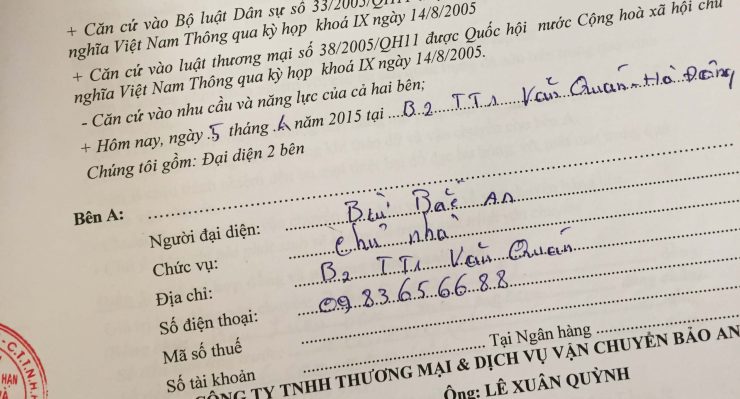 + Căn cứ vào Bộ luật Dân sự số 33/2005/QH11
nghĩa Việt Nam Thông qua kỳ họp khoá IX ngày 14/8/2005
+ Căn cứ vào luật thương mại số 38/2005/QH11 được Quốc hội nước Cộng hoà xã hội chủ
nghĩa Việt Nam Thông qua kỳ họp khoá IX ngày 14/8/2005.
- Căn cứ vào nhu cầu và năng lực của cả hai bên;
+ Hôm nay, ngày 5 tháng năm 2015 tại B2 TT1 Văn Quán - Hà Đông
Chúng tôi gồm: Đại diện 2 bên
Bên A:
Người đại diện: Bùi Bắc An
Chức vụ: Chủ nhà
Địa chỉ: B2 TT1 Văn Quán
Số điện thoại: 0983656688
Mã số thuế
Số tài khoản Tại Ngân hàng
CÔNG TY TNHH THƯƠNG MẠI & DỊCH VỤ VẬN CHUYỂN BẢO AN
Ông: LÊ XUÂN QUỲNH
C.T.T.N.H
HẠN